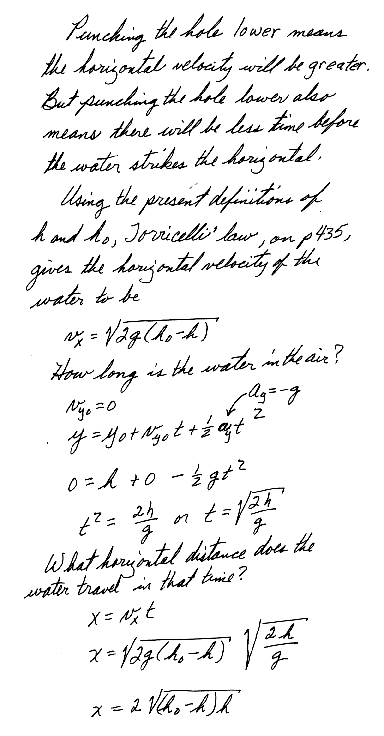 Punching the hole lower means
the horizontal velocity will be greater.
But punching the hole lower also
means there will be less time before
the water strikes the horizontal.
Using the present definitions of
h and h₀, Torricelli's law, on p435,
gives the horizontal velocity of the
water to be
vₓ = √2g(h₀-h)
How long is the water in the air?
v_y₀ = 0
a_y = -g
y = y₀ + v_y₀ t + ½ a_y t²
0 = h + 0 - ½ gt²
t² = 2h/g or t = √(2h/g)
What horizontal distance does the
water travel in that time?
x = vₓ t
x = √2g(h₀-h) √(2h/g)
x = 2 √(h₀-h)h